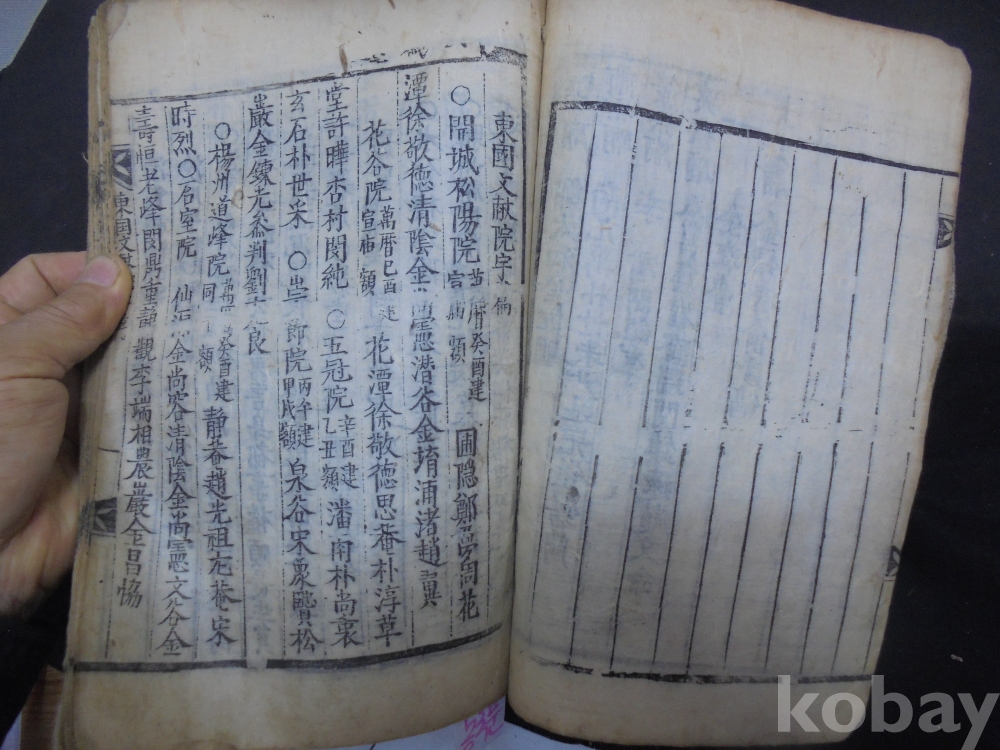 東國文献院宇 編
○開城松陽院 萬曆癸酉建 宣廟額 圃隱鄭夢周花
潭徐敬德清陰金尚憲潛谷金堉浦渚趙翼
花谷院 萬曆己酉建 宣廟額 花潭徐敬德思菴朴淳草
堂許曄杏村閔純 ○五冠院 辛酉建 乙丑額 潘南朴尚衷
玄石朴世采 ○崇節院 丙午建 甲戌額 泉谷宋象賢松
巖金鍊光叅判劉克良
○楊州道峰院 萬曆癸酉建 同額 靜春趙光祖尤菴宋
時烈○石室院 仙源金尚容清陰金尚憲文谷金
壽恒老峰閔鼎重 李端相農巖金昌協
東国文献
kobay